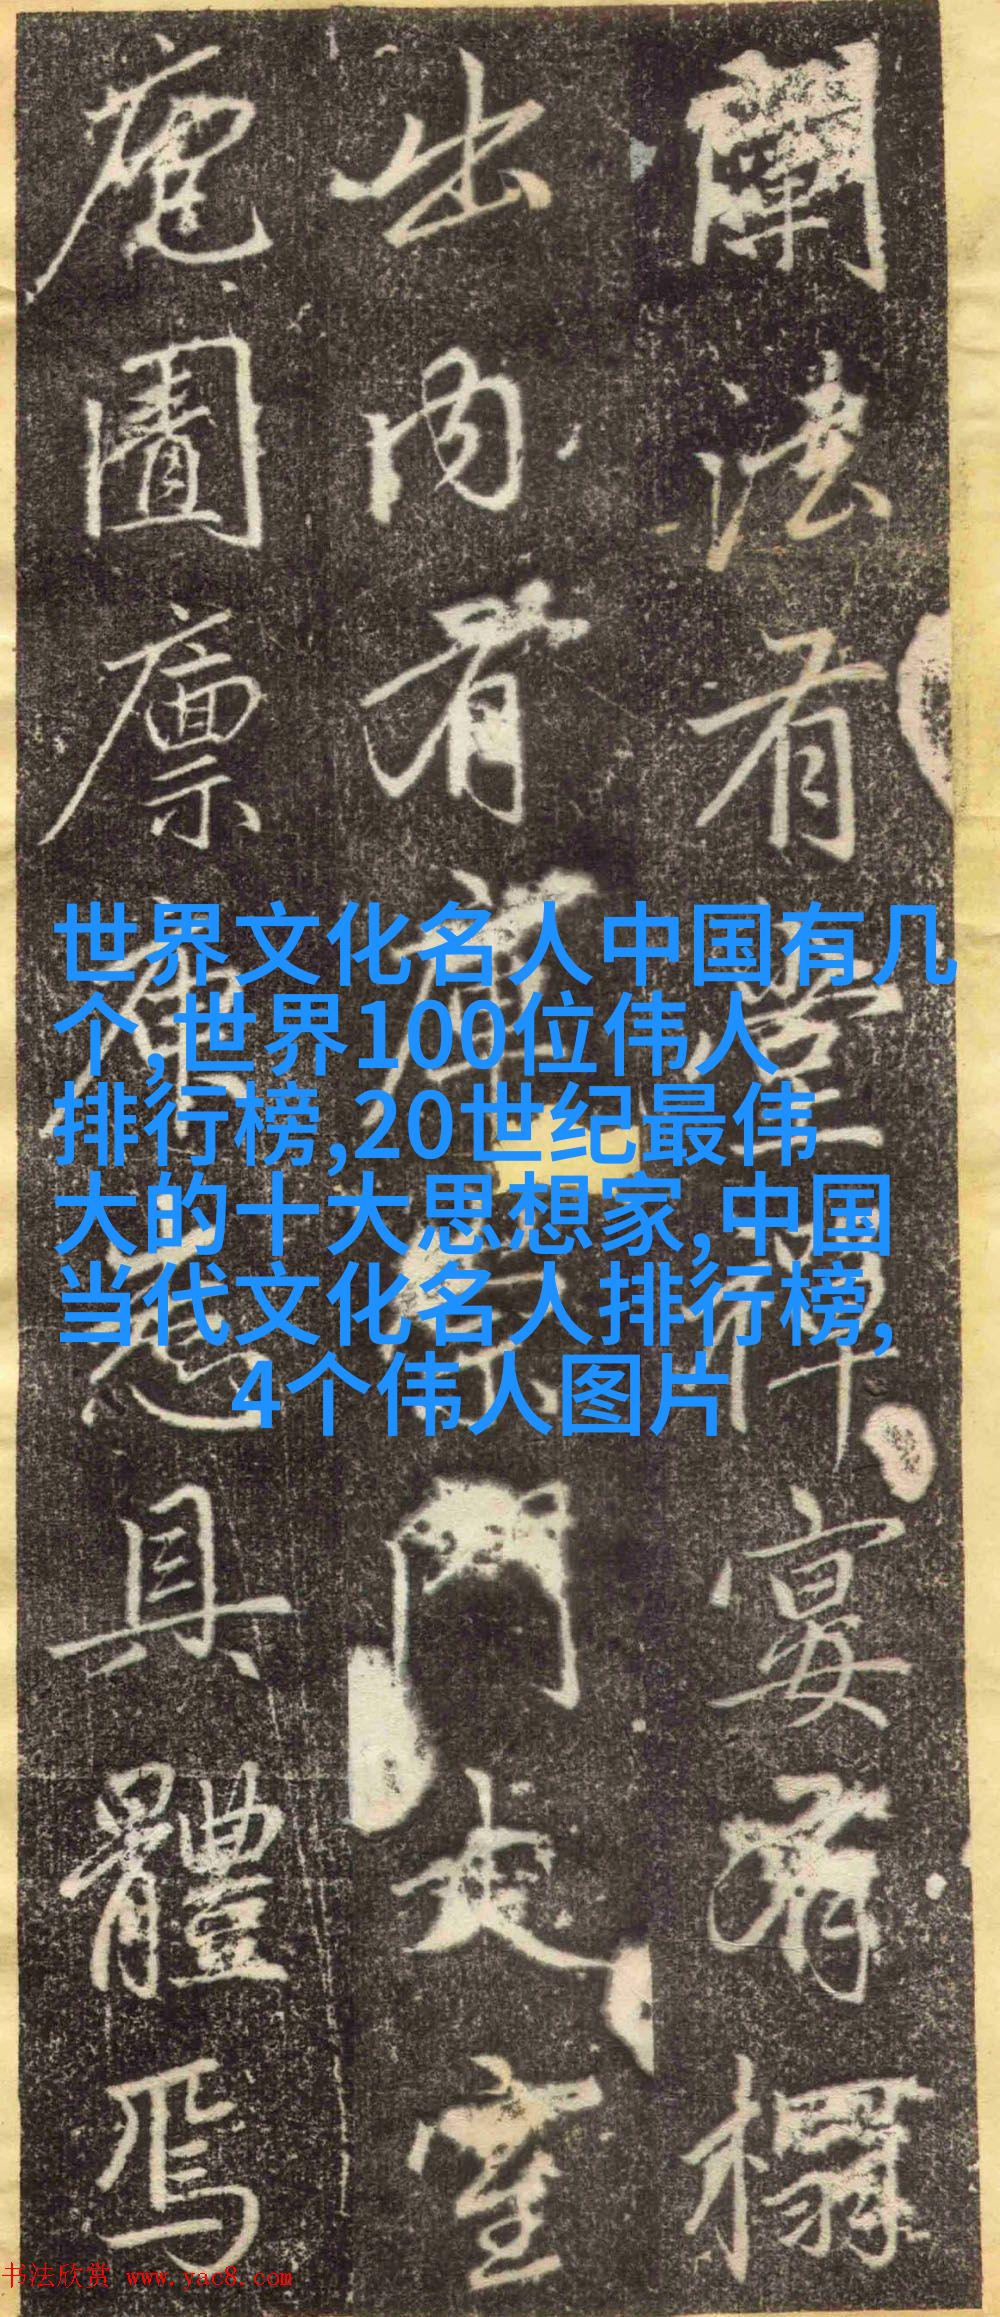 闡法有堂禪宴有榻
出內有庫門夾室
庖圊廩庾悉具體焉
世界文化名人中国有几
个,世界100位伟人
排行榜,20世纪最伟
大的十大思想家,中国
当代文化名人排行榜,
4个伟人图片
书法欣赏 www.yac8.com